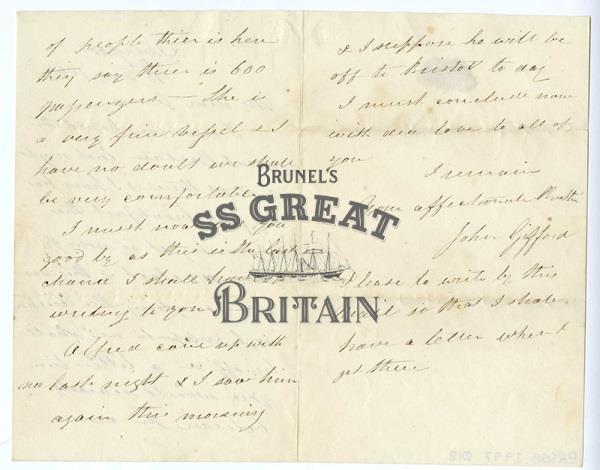 of people thier is here
they say thier is 600
passengers — She is
a very fine vessel & I
have no doubt we shall
be very comfortable
I must now you
good by as this is the last
chance I shall have of
writing to you
Alfred came up with
me last night & I saw him
again this morning
& I suppose he will be
off to Bristol to day
I must conclude now
with dear love to all of
you
I remain
Your affectionate Brother
John Gifford
Please to write by this
mail so that I shall
have a letter when I
get there
BRUNEL'S
SS GREAT
BRITAIN